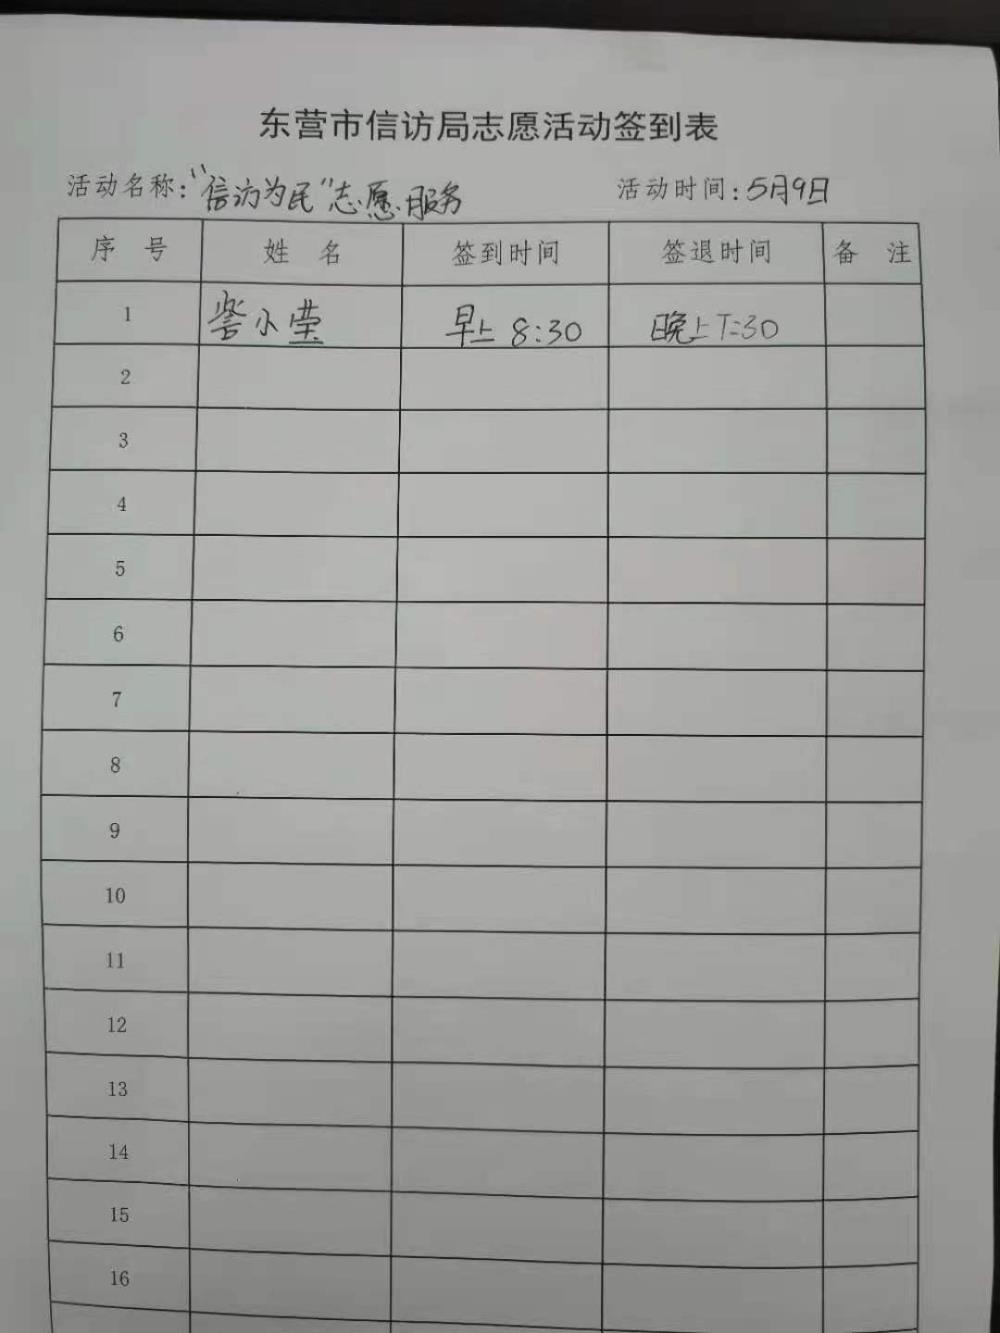 东营市信访局志愿活动签到表
活动名称:"信访为民"志愿服务 活动时间:5月9日
序 号 姓 名 签到时间 签退时间 备 注
1 小莹 早上 8:30 晚上 :30
2
3
4
5
6
7
8
9
10
11
12
13
14
15
16